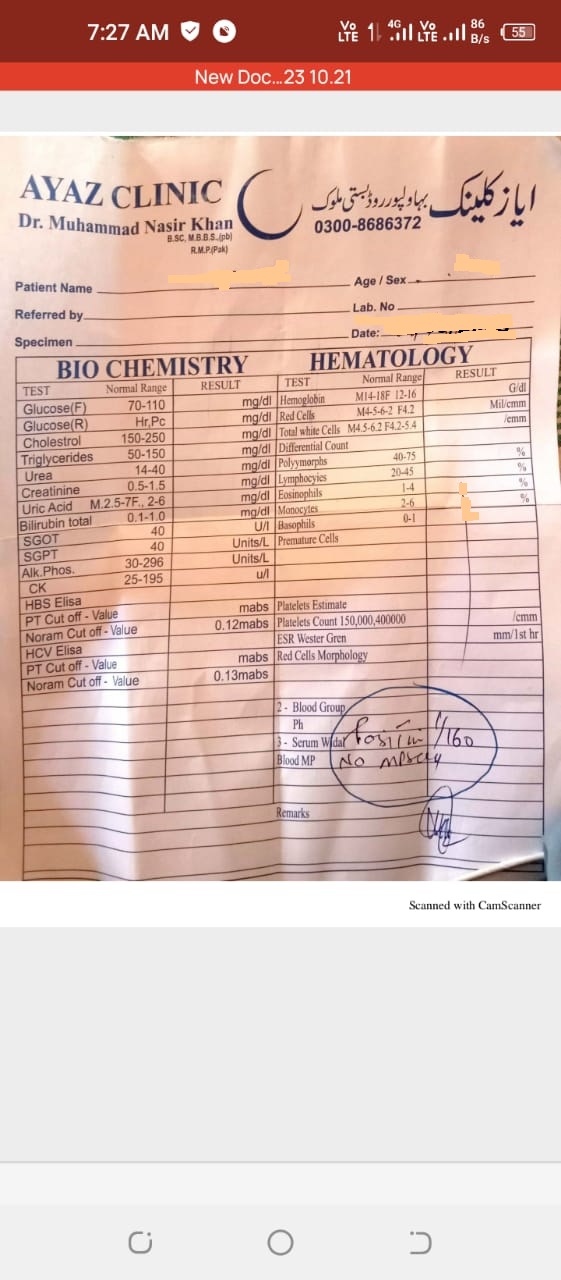 7:27 AM
Vo LTE 1 4G Vo LTE 86 B/s 55
New Doc...23 10.21
AYAZ CLINIC
Dr. Muhammad Nasir Khan
B.SC, M.B.B.S.(pb)
R.M.P.(Pak)
ایاز کلینک
بہاولپور روڈ بستی ملوک
0300-8686372
Patient Name
Age / Sex
Referred by
Lab. No
Specimen
Date:
BIO CHEMISTRY
TEST Normal Range RESULT
Glucose(F) 70-110 mg/dl
Glucose(R) Hr,Pc mg/dl
Cholestrol 150-250 mg/dl
Triglycerides 50-150 mg/dl
Urea 14-40 mg/dl
Creatinine 0.5-1.5 mg/dl
Uric Acid M.2.5-7F., 2-6 mg/dl
Bilirubin total 0.1-1.0 mg/dl
SGOT 40 U/I
SGPT 40 Units/L
Alk.Phos. 30-296 Units/L
CK 25-195 u/l
HBS Elisa
PT Cut off - Value mabs
Noram Cut off - Value 0.12mabs
HCV Elisa
PT Cut off - Value mabs
Noram Cut off - Value 0.13mabs
HEMATOLOGY
TEST Normal Range RESULT
Hemoglobin M14-18F 12-16 G/dl
Red Cells M4-5-6-2 F4.2 Mil/cmm
Total white Cells M4.5-6.2 F4.2-5.4 /cmm
Differential Count
Polyymorphs 40-75 %
Lymphocyies 20-45 %
Eosinophils 1-4 %
Monocytes 2-6 %
Basophils 0-1
Premature Cells
Platelets Estimate
Platelets Count 150,000,400000 /cmm
ESR Wester Gren mm/1st hr
Red Cells Morphology
2 - Blood Group
Ph
3 - Serum Widal 1/160
Blood MP No
Remarks
Scanned with CamScanner